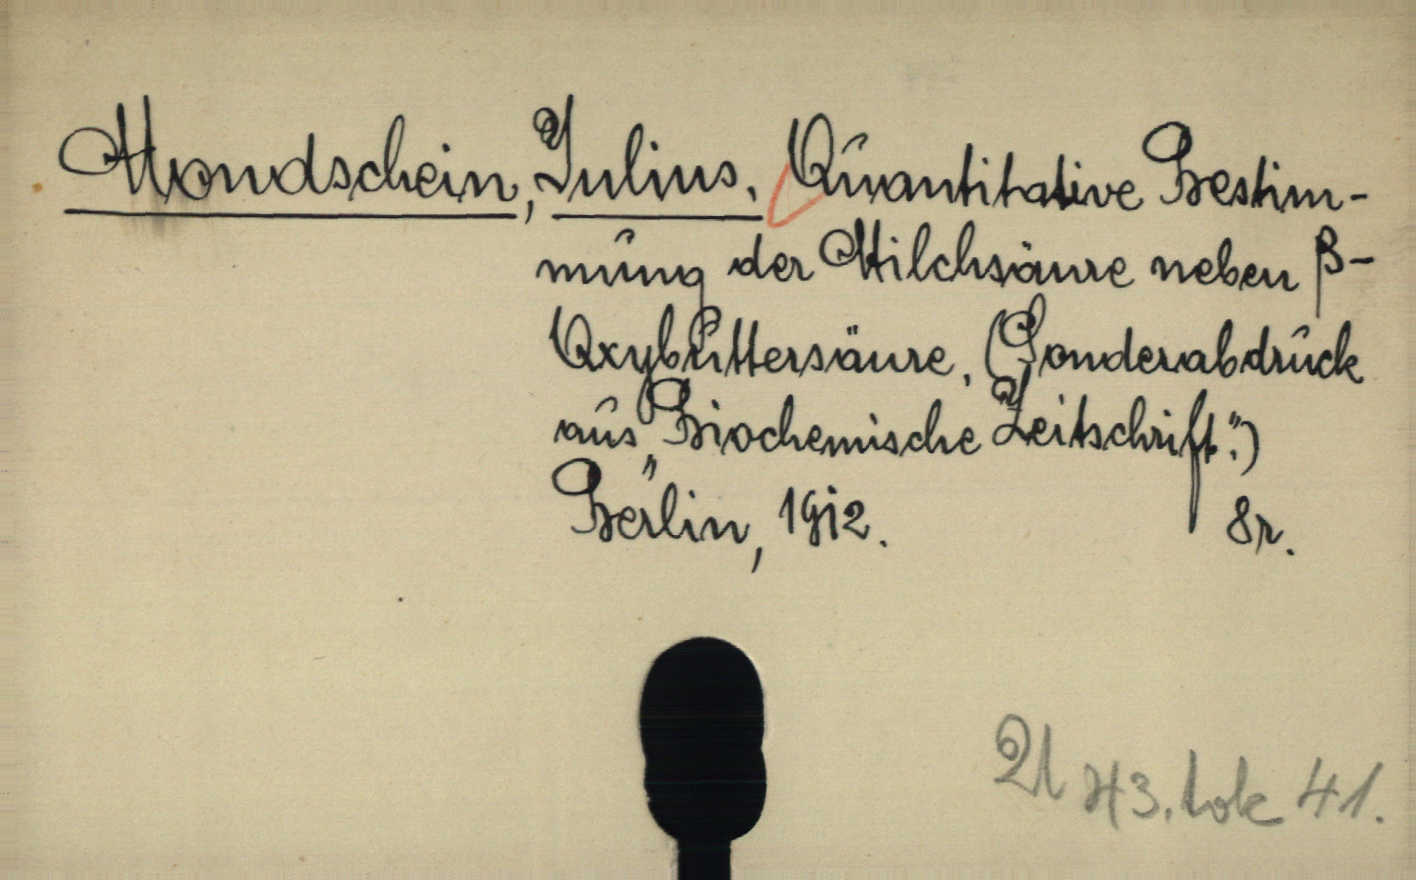 Mondschein, Julius. Quantitative Bestim-
mung der Milchsäure neben β-
Oxybuttersäure. (Sonderabdruck
aus „Biochemische Zeitschrift“.)
Berlin, 1912. 8r.
43. lok 41.